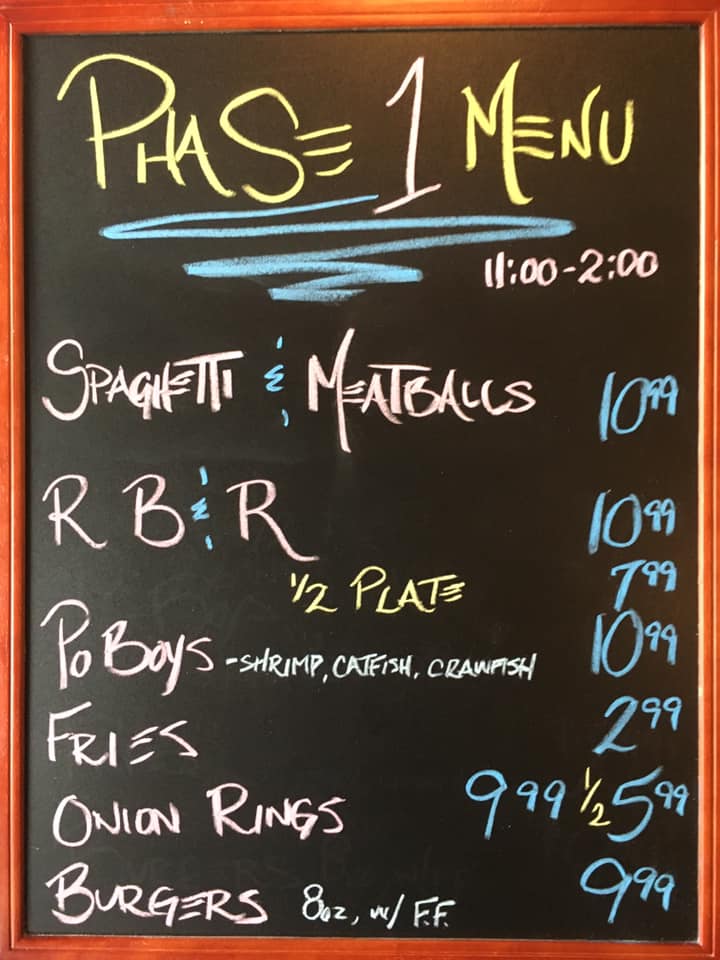 PHASE 1 MENU
11:00-2:00
SPAGHETTI & MEATBALLS 10.99
R B & R 10.99
1/2 PLATE 7.99
PO BOYS - SHRIMP, CATFISH, CRAWFISH 10.99
FRIES 2.99
ONION RINGS 9.99 1/2 5.99
BURGERS 8oz, w/ F.F. 9.99